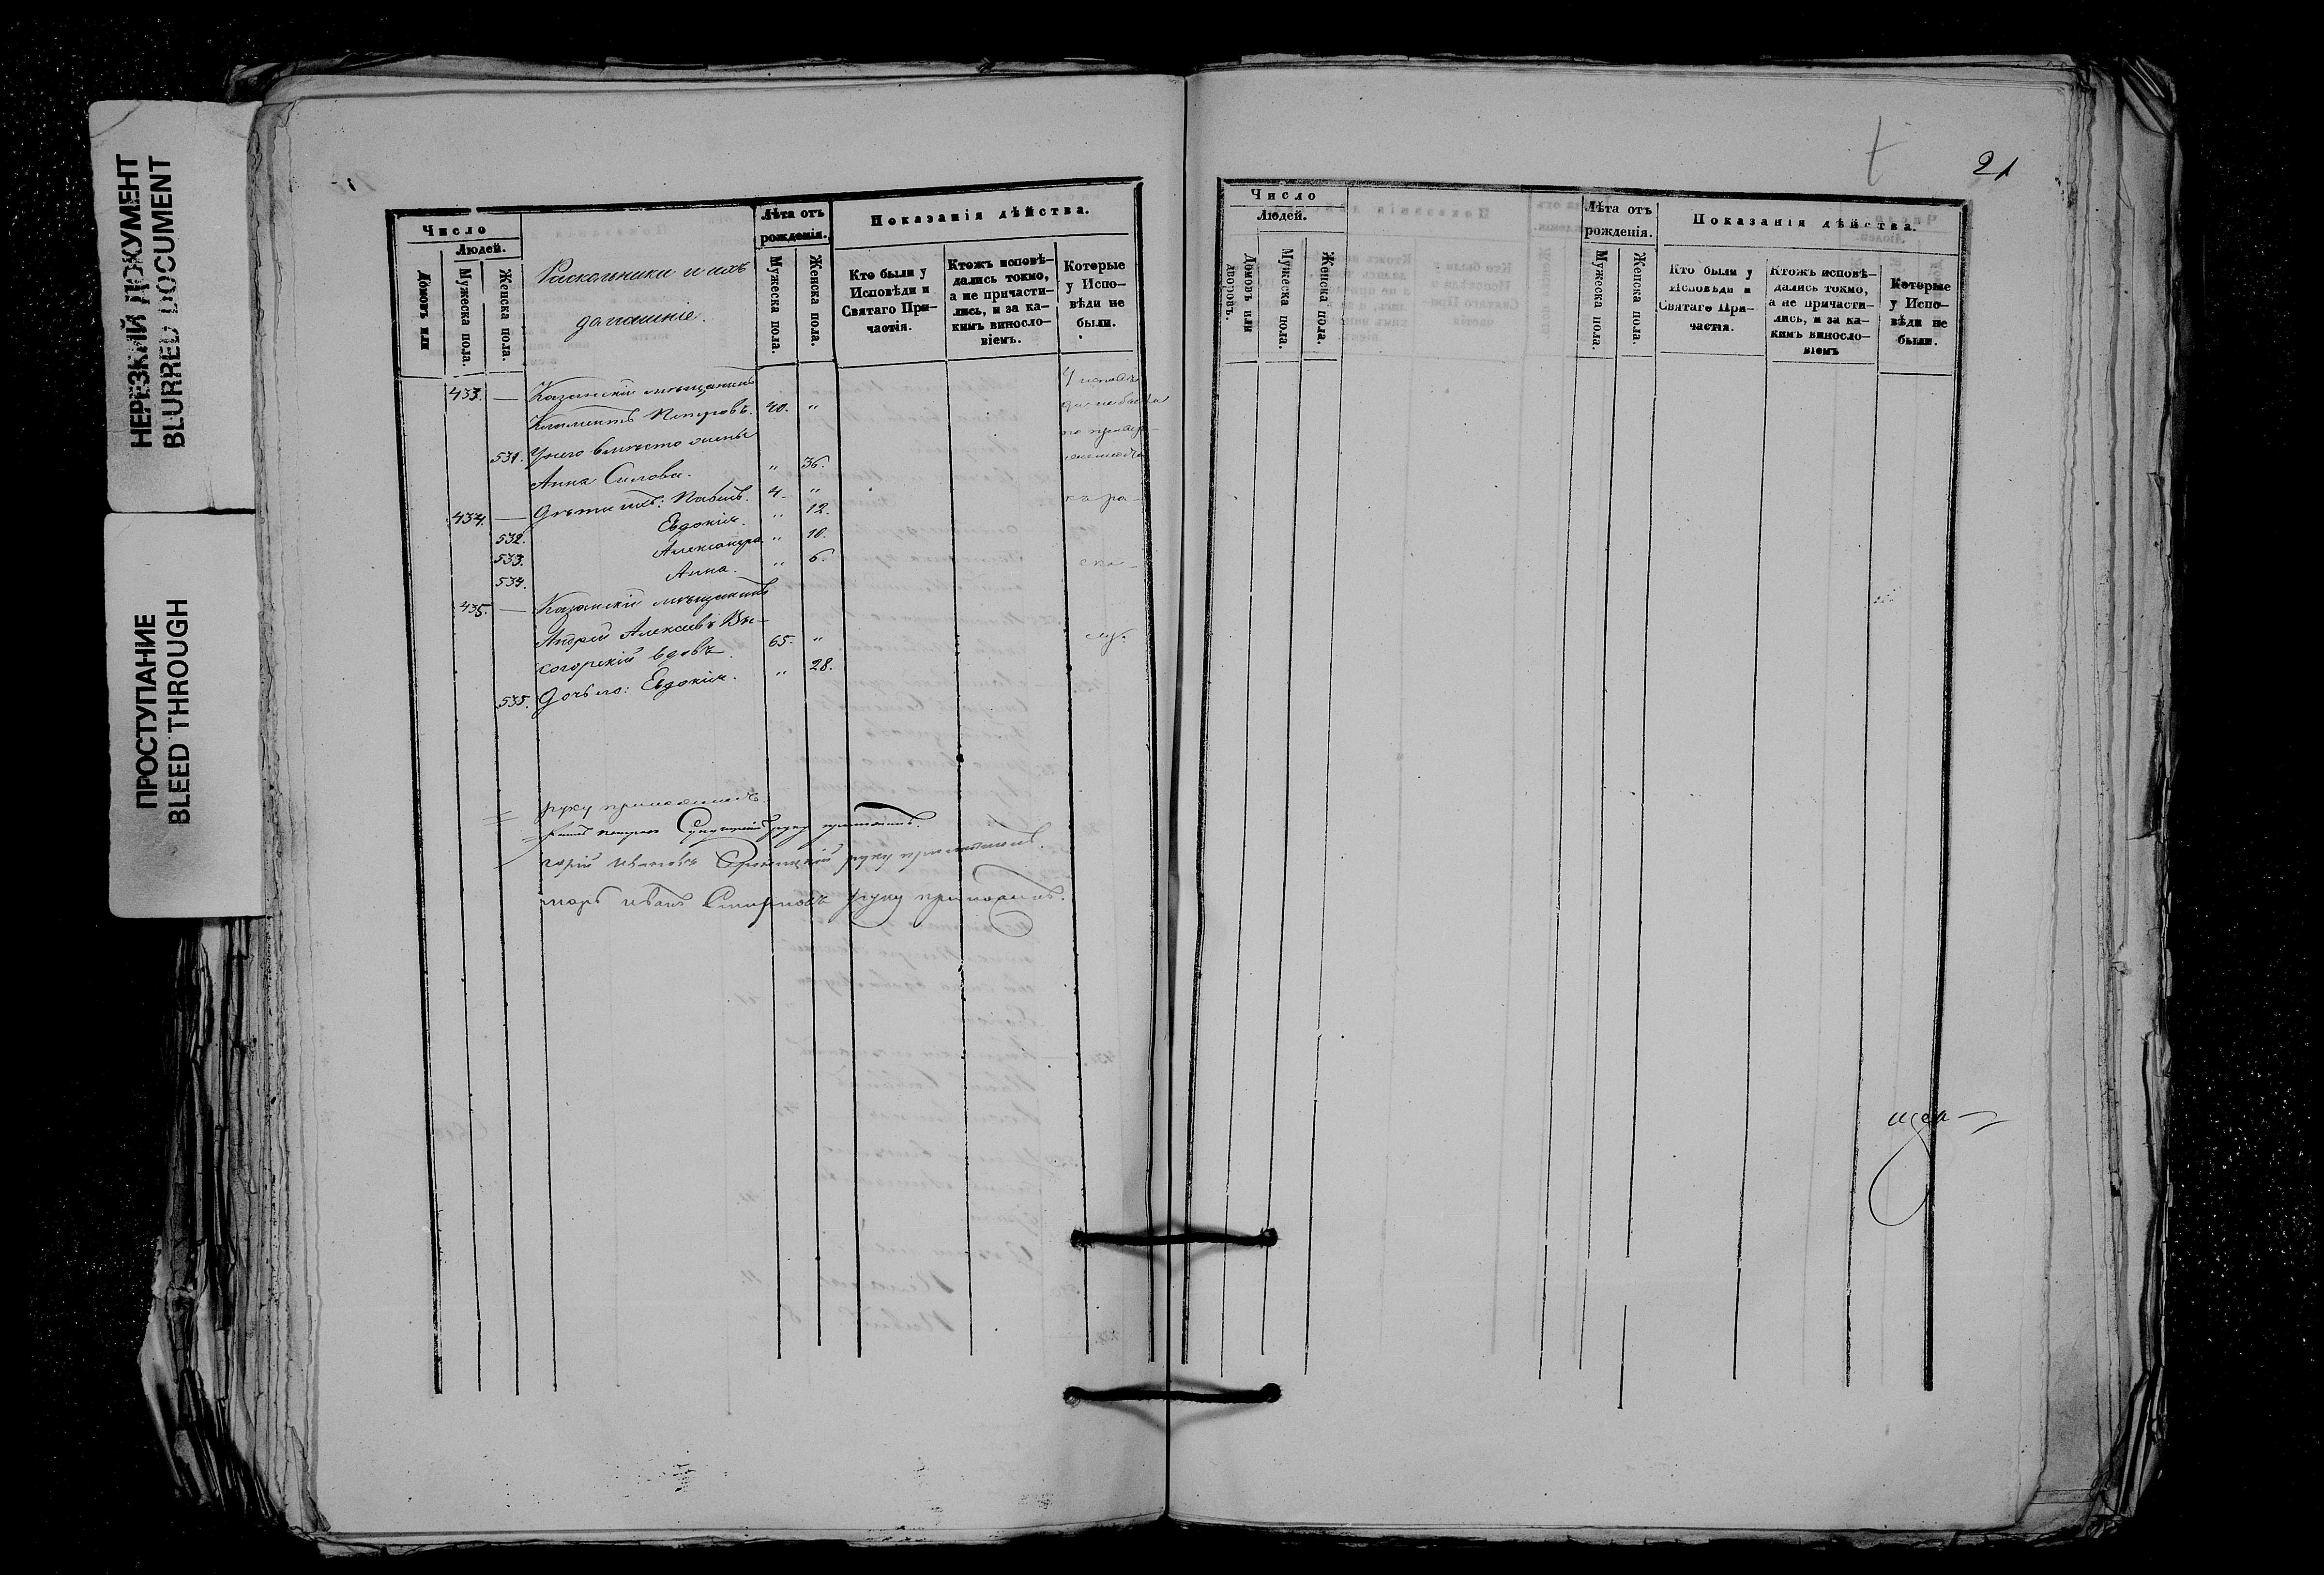 НЕРЕЗКИЙ ДОКУМЕНТ
BLURRED DOCUMENT
ПРОСТУПАНИЕ
BLEED THROUGH
Число
Людей.
Домовъ или
Мужеска пола.
Женска пола.
Раскольники и ихъ
домашніе.
Лѣта отъ
рожденія.
Мужеска пола.
Женска пола.
Показанія дѣйства.
Кто были у
Исповѣди и
Святаго При-
частія.
Ктожъ исповѣ-
дались токмо,
а не причасти-
лись, и за ка-
кимъ виносло-
віемъ.
Которые
у Испо-
вѣди не
были.
433. — Казанскій мѣщанинъ
Климентъ Петровъ. 40. "
531. У него вмѣсто жены
Анна Силова. " 36.
434. — Дѣти ихъ: Павелъ. 4. "
532. Евдокія. " 12.
533. Александра. " 10.
534. Анна. " 6.
435. — Казанскій мѣщанинъ
Андрей Алексѣевъ Вы-
согорскій вдовъ 65. "
535. Дочь его: Евдокія. " 28.
У исповѣ-
ди не были
по принад-
лежности
къ ра-
ско-
лу.
руку приложилъ.
руку приложилъ.
Ивановъ руку приложилъ.
Иванъ Смирновъ руку приложилъ.
21
Число
Людей.
Домовъ или
дворовъ.
Мужеска пола.
Женска пола.
Лѣта отъ
рожденія.
Мужеска пола.
Женска пола.
Показанія дѣйства.
Кто были у
Исповѣди и
Святаго При-
частія.
Ктожъ исповѣ-
дались токмо,
а не причасти-
лись, и за ка-
кимъ виносло-
віемъ
Которые
у Испо-
вѣди не
были.